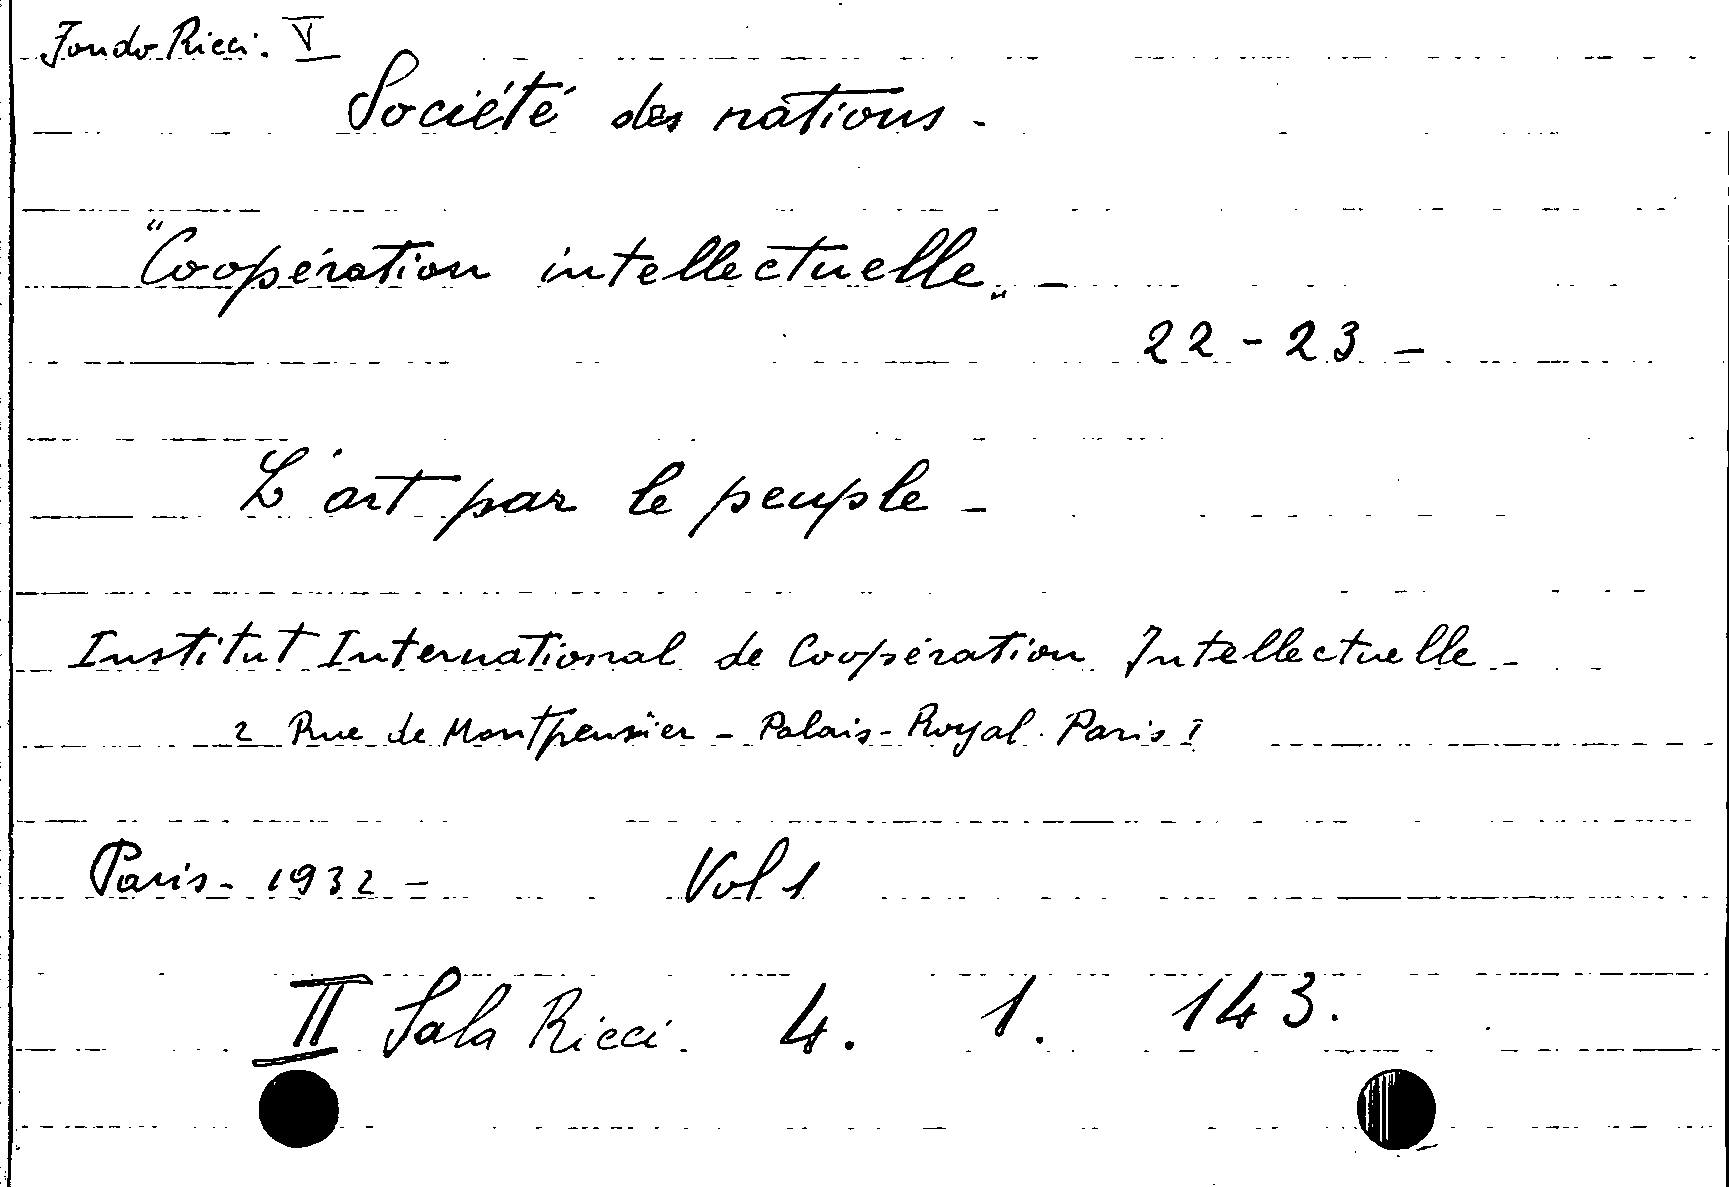 Fondo Ricci. V
Société des nations -
"Coopération intellectuelle„ -
22 - 23 -
L'art par le peuple -
Institut International de Coopération Intellectuelle -
2 Rue de Montpensier - Palais - Royal. Paris I
Paris - 1932 - Vol 1
II Sala Ricci. 4. 1. 143.